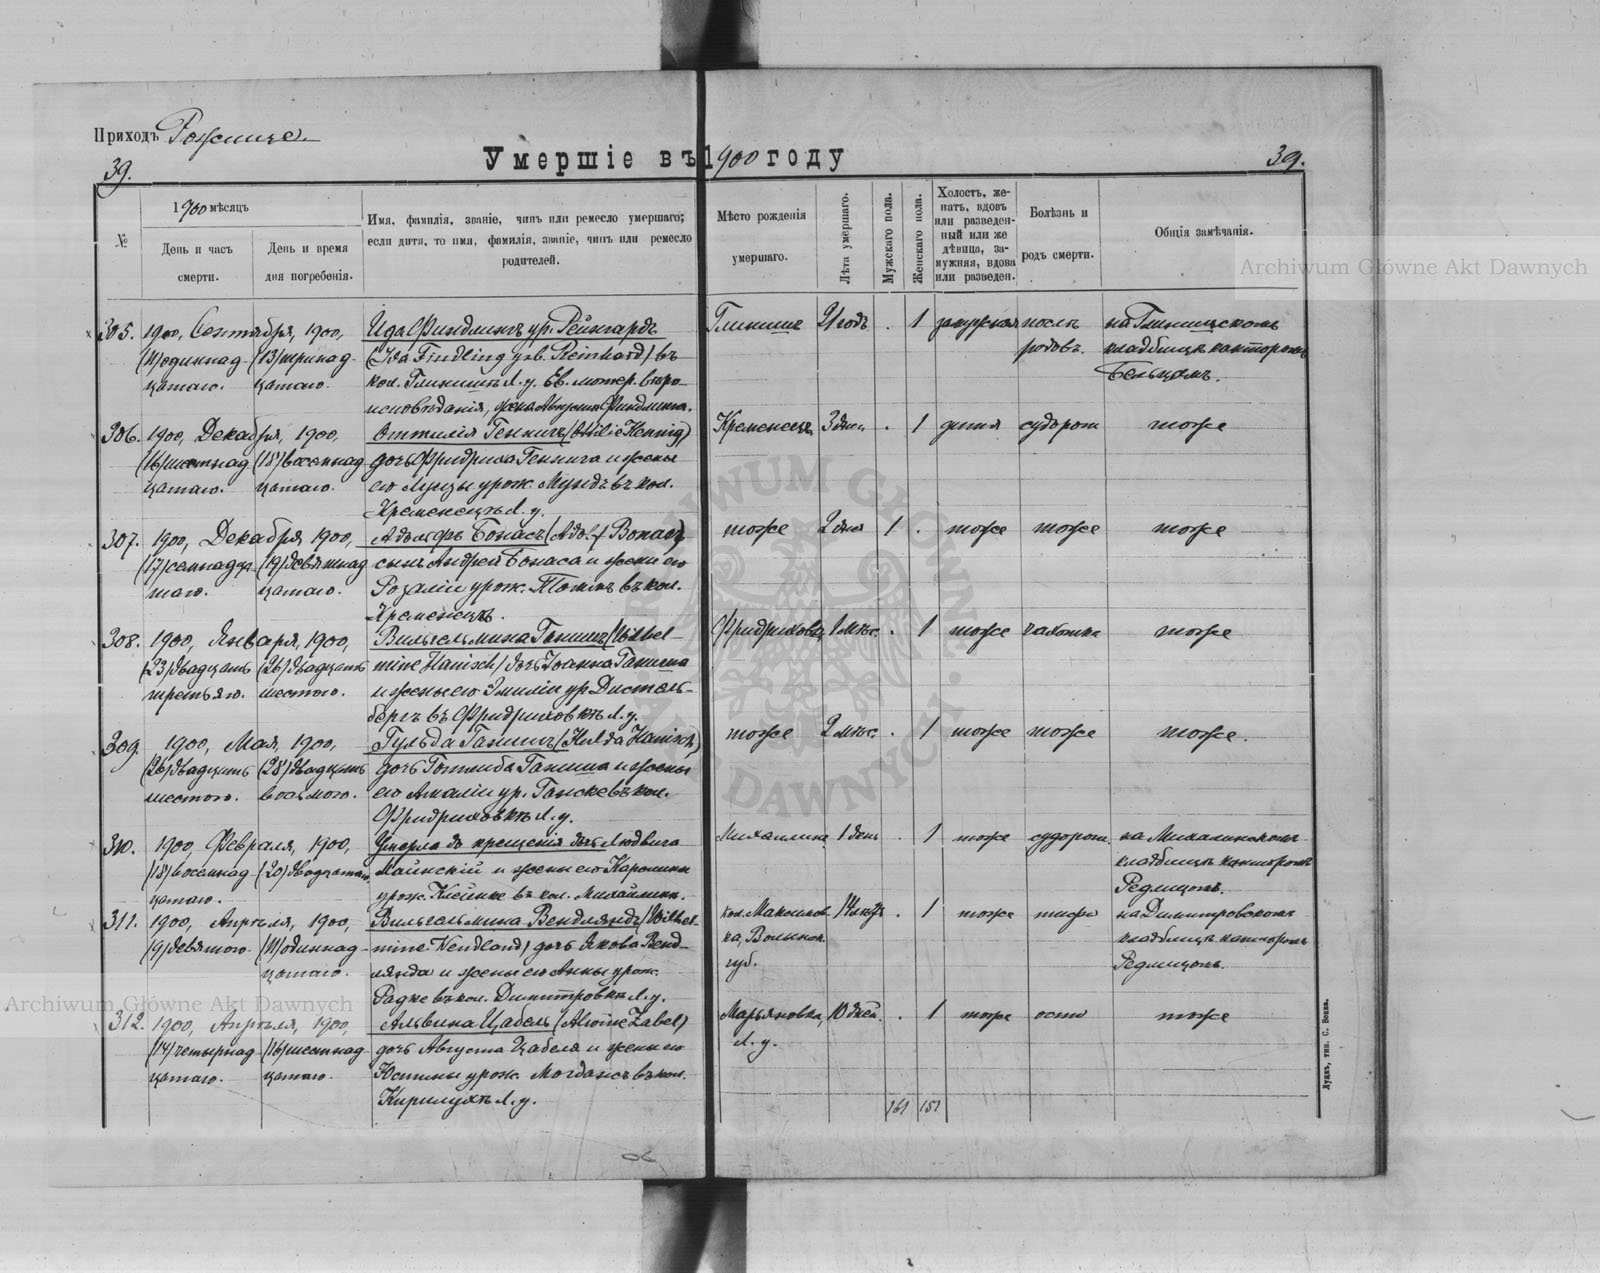 Приходъ Рожище.
39.
Умершіе въ 1900 году
39.
№
1900 мѣсяцъ
День и часъ смерти.
День и время дня погребенія.
Имя, фамилія, званіе, чинъ или ремесло умершаго;
если дитя, то имя, фамилія, званіе, чинъ или ремесло
родителей.
Мѣсто рожденія
умершаго.
Лѣта умершаго.
Мужскаго пола.
Женскаго пола.
Холостъ, же-
натъ, вдовъ
или разведен-
ный или же
дѣвица, за-
мужняя, вдова
или разведен.
Болѣзнь и
родъ смерти.
Общія замѣчанія.
305. 1900, Сентября, 1900, Ида Финдлингъ ур. Рейнгардъ Глинище 21 годъ . 1 замужная послѣ на Глинищскомъ
(11) одиннад- (13) тринад- (Ida Findling geb. Reinhard) въ родовъ. кладбищѣ канторомъ
цатаго. цатаго. кол. Глинищѣ Л. у. Ев. лютер. вѣро- Бельцомъ.
исповѣданія, жена Августа Финдлинга.
306. 1900, Декабря, 1900, Оттилія Геннигъ (Ottilie Hennig) Кременецъ 3 дня . 1 дитя судорог. тоже
(16) шестнад- (18) восемнад- дочь Фридриха Геннига и жены
цатаго. цатаго. его Луизы урож. Мундъ въ кол.
Кременецъ Л. у.
307. 1900, Декабря 1900, Адольфъ Бонасъ (Adolf Bonas) тоже 2 дня 1 . тоже тоже тоже
(17) семнадца- (19) девятнад- сынъ Андрея Бонаса и жены его
таго. цатаго. Розаліи урож. въ кол.
Кременецъ.
308. 1900, Января, 1900, Вильгельмина Ганишъ (Wilhel- Фридриховка 1 мѣс. . 1 тоже чахотка тоже
(23) двадцать (26) двадцать mine Hanisch) дочь Іоанна Ганиша
третьяго. шестого. и жены его Эмиліи ур. Дистель-
бергъ въ Фридриховкѣ Л. у.
309. 1900, Мая, 1900, Гульда Ганишъ (Hulda Hanisch) тоже 2 мѣс. 1 тоже тоже тоже.
(26) двадцать (28) двадцать дочь Готлиба Ганиша и жены
шестого. восьмого. его Амаліи ур. Ганске въ кол.
Фридриховкѣ Л. у.
310. 1900, Февраля, 1900, Умерла до крещенія дочь Людвига Михалина 1 день . 1 тоже судорог. на Михалинскомъ
(18) восемнад- (20) двадцатаго и жены его Каролины кладбищѣ канторомъ
цатаго. урож. въ кол. Михалинѣ. Редлицомъ.
311. 1900, Апрѣля, 1900, Вильгельмина Вендляндъ (Wilhel- кол. Максимов- . 1 тоже тифъ на Димитровскомъ
(9) девятого. (11) одиннад- mine Wendland) дочь Якова Венд- ка, Волынск. кладбищѣ канторомъ
цатаго. лянда и жены его Анны урож. губ. Редлицомъ.
Радке въ кол. Димитровкѣ Л. у.
312. 1900, Апрѣля, 1900, Альвина Цабель (Alwine Zabel) Марьяновка, 10 дней. . 1 тоже оспа тоже
(14) четырнад- (16) шестнад- дочь Августа Цабеля и жены его Л. у.
цатаго. цатаго. Юстины урож. въ кол.
Л. у.
161 151
Луцкъ, тип. С. Бокка.
Archiwum Główne Akt Dawnych
Archiwum Główne Akt Dawnych
ARCHIWUM GŁÓWNE AKT DAWNYCH